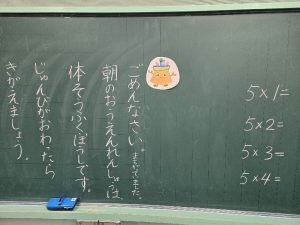 ごめんなさい。まちがいてました。
朝のおうえんれんしゅうは、
体そうふくぼうしです。
じゅんびがおわったら
きがえましょう。
5×1=
5×2=
5×3=
5×4=